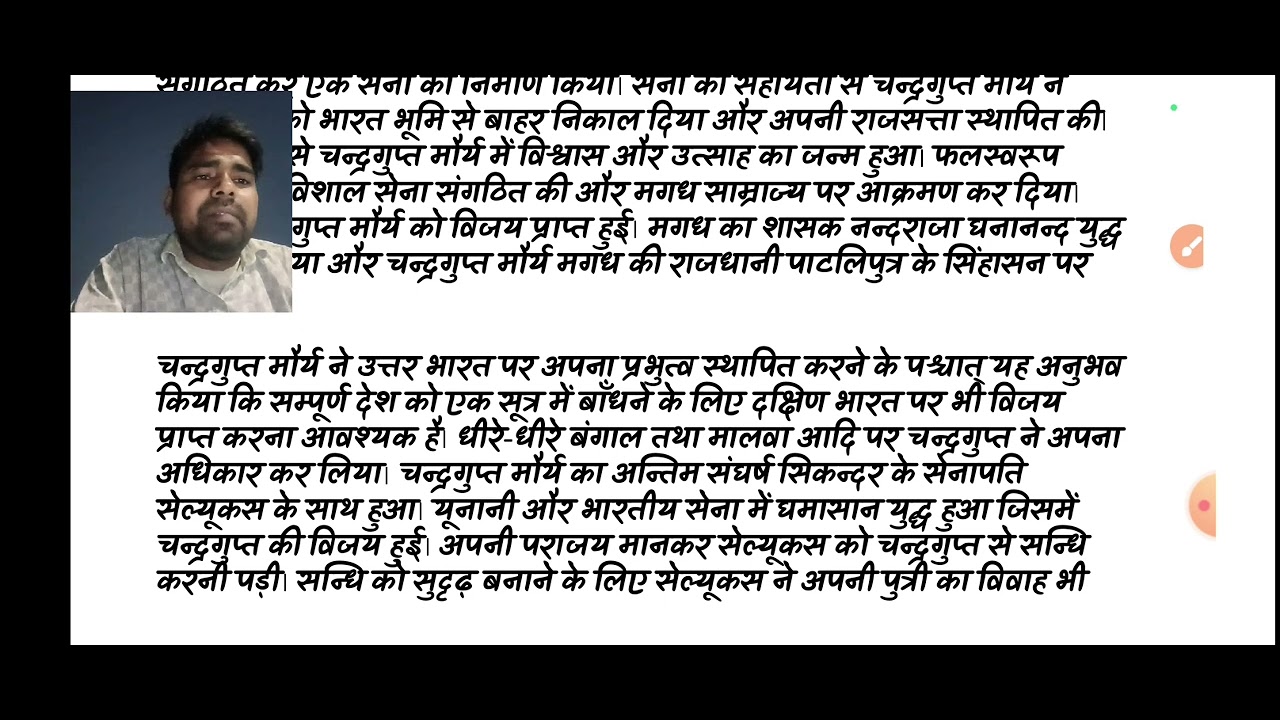 संगठित कर एक सेना का निर्माण किया। सेना की सहायता से चन्द्रगुप्त मौर्य ने
को भारत भूमि से बाहर निकाल दिया और अपनी राजसत्ता स्थापित की।
से चन्द्रगुप्त मौर्य में विश्वास और उत्साह का जन्म हुआ। फलस्वरूप
विशाल सेना संगठित की और मगध साम्राज्य पर आक्रमण कर दिया।
गुप्त मौर्य को विजय प्राप्त हुई। मगध का शासक नन्दराजा घनानन्द युद्ध
या और चन्द्रगुप्त मौर्य मगध की राजधानी पाटलिपुत्र के सिंहासन पर
चन्द्रगुप्त मौर्य ने उत्तर भारत पर अपना प्रभुत्व स्थापित करने के पश्चात् यह अनुभव
किया कि सम्पूर्ण देश को एक सूत्र में बाँधने के लिए दक्षिण भारत पर भी विजय
प्राप्त करना आवश्यक है। धीरे-धीरे बंगाल तथा मालवा आदि पर चन्द्रगुप्त ने अपना
अधिकार कर लिया। चन्द्रगुप्त मौर्य का अन्तिम संघर्ष सिकन्दर के सेनापति
सेल्यूकस के साथ हुआ। यूनानी और भारतीय सेना में घमासान युद्ध हुआ जिसमें
चन्द्रगुप्त की विजय हुई। अपनी पराजय मानकर सेल्यूकस को चन्द्रगुप्त से सन्धि
करनी पड़ी। सन्धि को सुदृढ़ बनाने के लिए सेल्यूकस ने अपनी पुत्री का विवाह भी